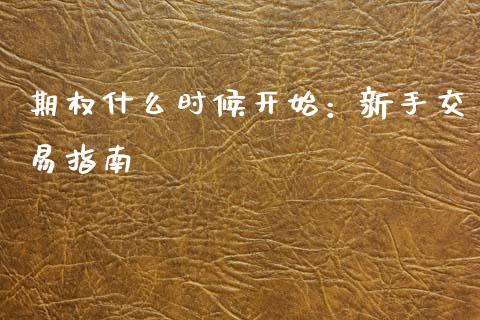 期权什么时候开始：新手交
易指南